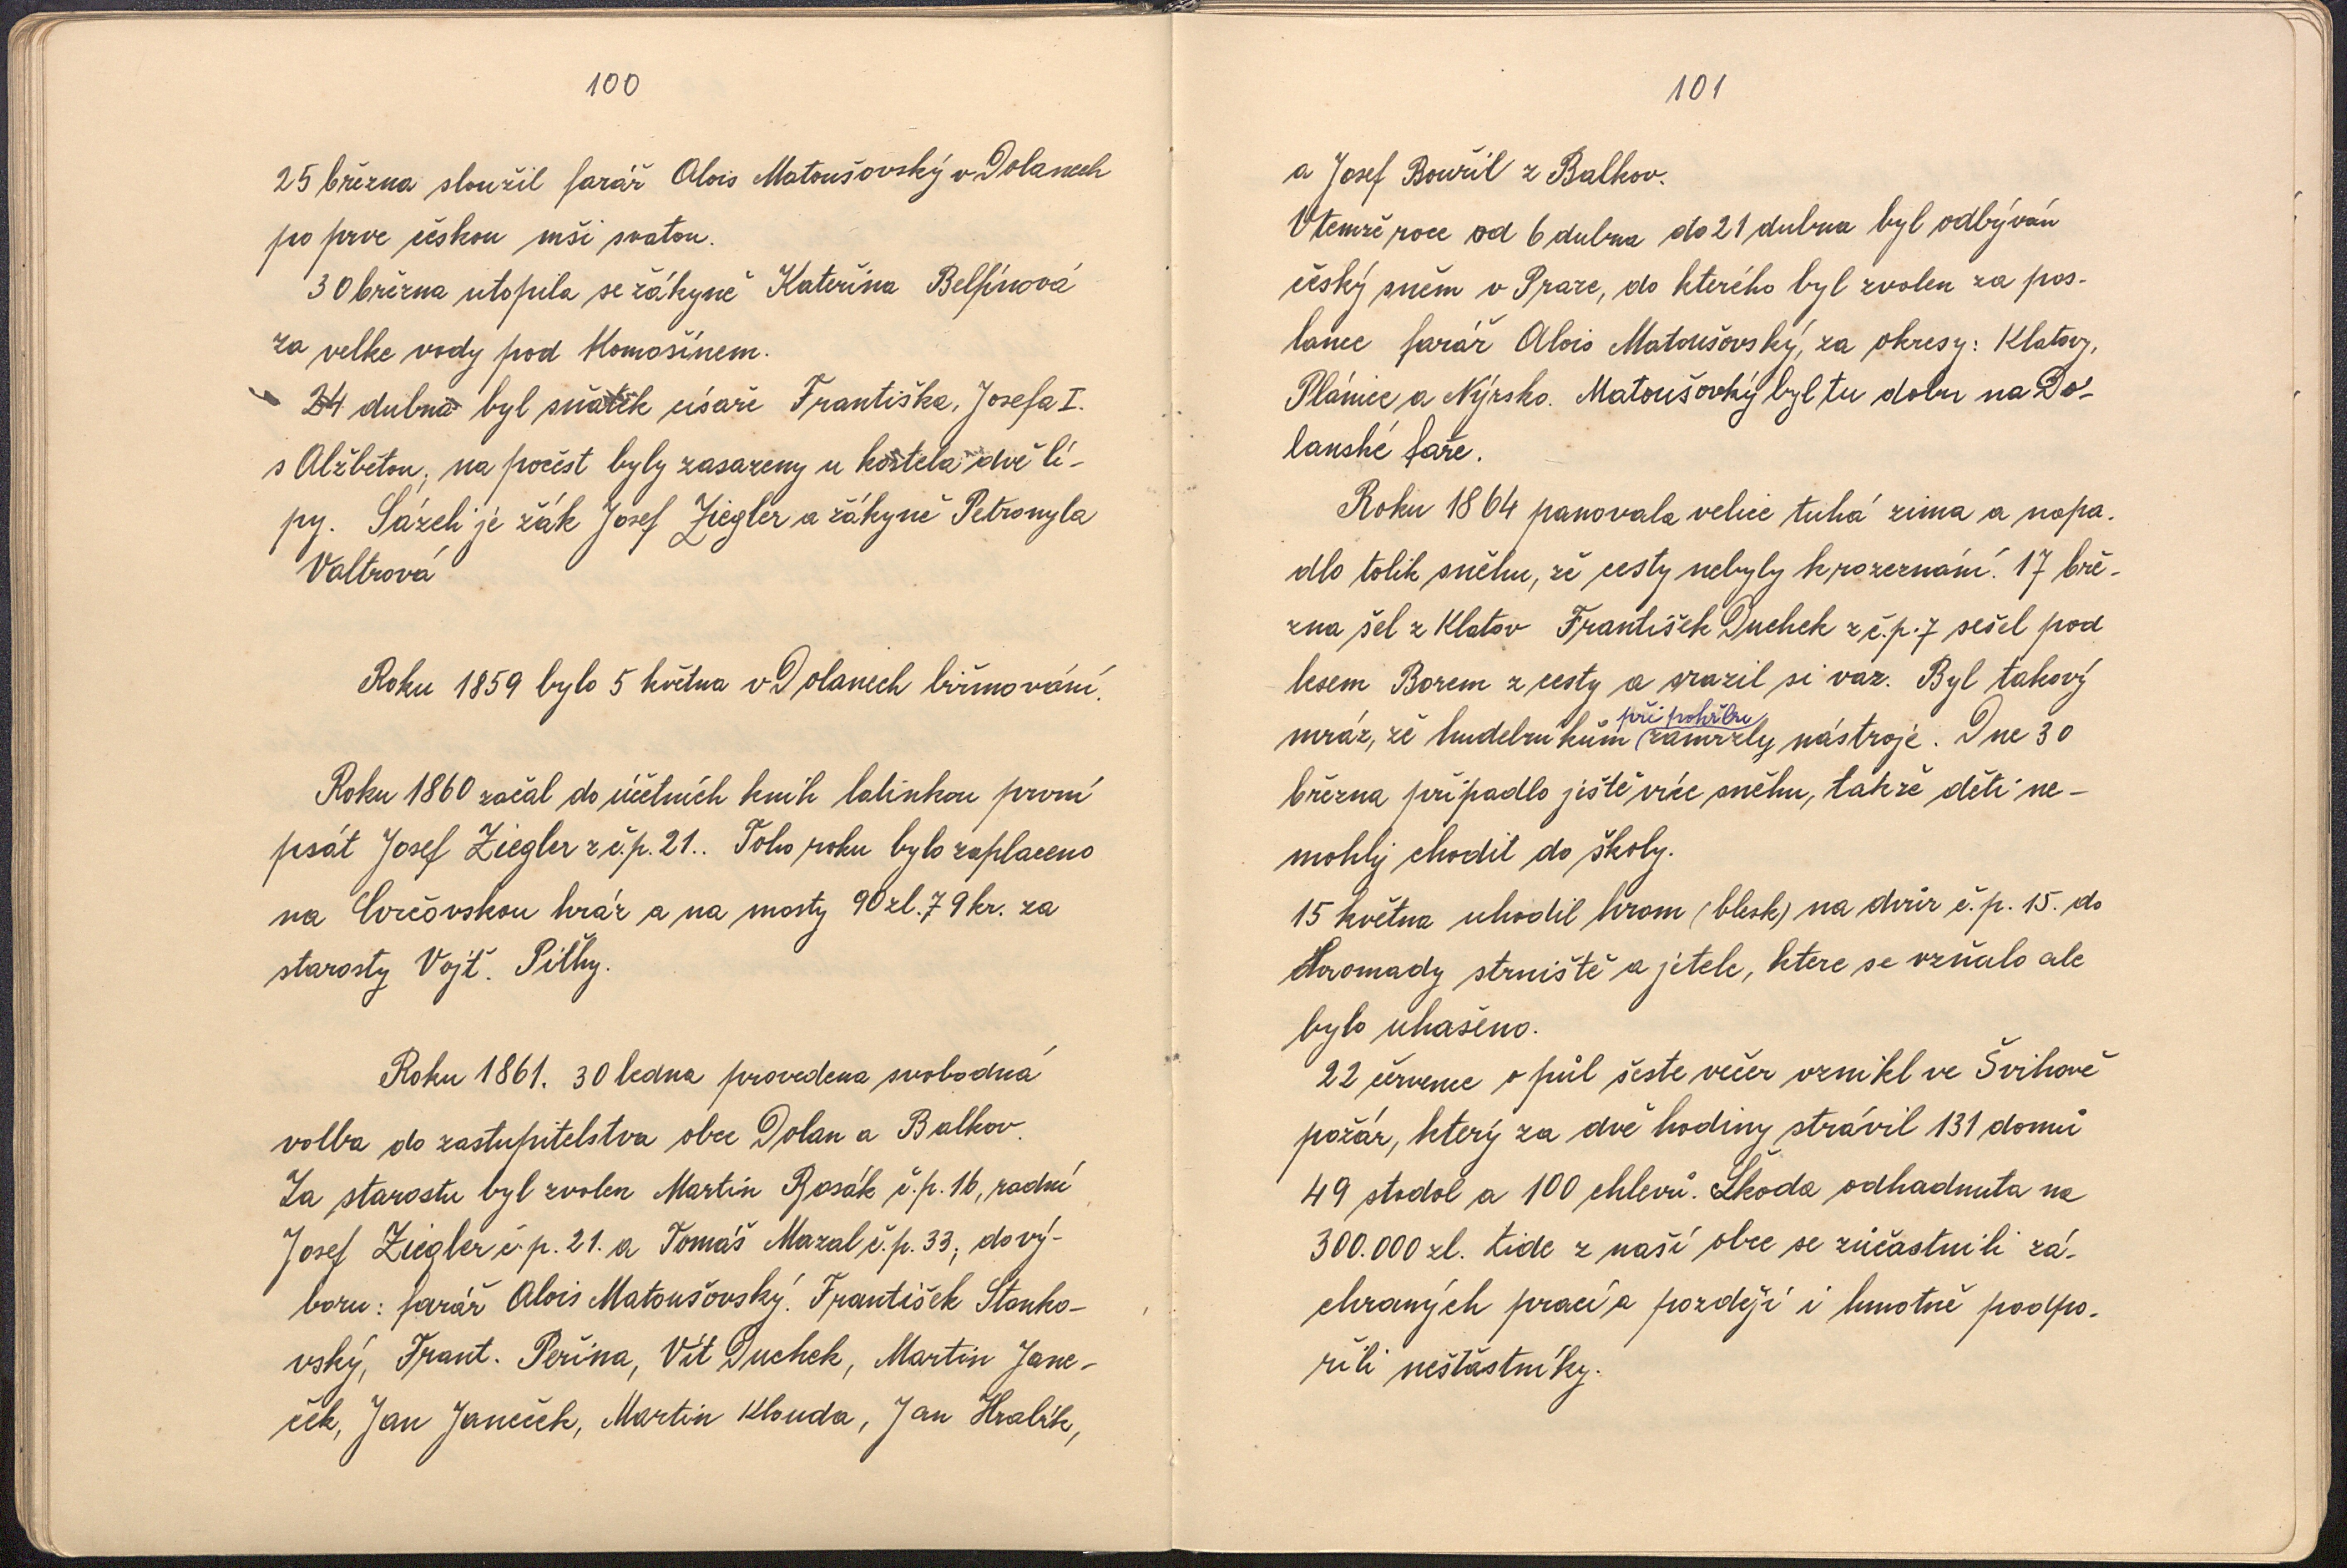 100
25 března sloužil farář Alois Matoušovský v Dolanech
po prve českou mši svatou.
30 března utopila se žákyně Kateřina Belfínová
za velke vody pod Komošínem.
24 dubna byl sňatek císaře Františka, Josefa I.
s Alžbětou, na počest byly zasazeny u kostela dvě lí-
py. Sázeli je žák Josef Ziegler a žákyně Petronyla
Valtrová
Roku 1859 bylo 5 května v Dolanech biřmování.
Roku 1860 začal do účetních knih latinkou první
psát Josef Ziegler z č.p. 21.. Toho roku bylo zaplaceno
na Svrčovskou hráz a na mosty 90 zl. 79 kr. za
starosty Vojt. Pithy.
Roku 1861. 30 ledna provedena svobodná
volba do zastupitelstva obce Dolan a Balkov.
Za starostu byl zvolen Martin Rosák č.p. 16, radní
Josef Ziegler č.p. 21. a Tomáš Mazal č.p. 33, do vý-
boru: farář Alois Matoušovský. František Stanko-
vský, Frant. Peřina, Vít Duchek, Martin Jane-
ček, Jan Janeček, Martin Klouda, Jan Hralík,
101
a Josef Bouřil z Balkov.
V temže roce od 6 dubna do 21 dubna byl odbýván
český sněm v Praze, do kterého byl zvolen za pos-
lance farář Alois Matoušovský, za okresy: Klatovy,
Plánice a Nýrsko. Matoušovký byl tu dobu na Do-
lanské faře.
Roku 1864 panovala velice tuhá zima a napa-
dlo tolik sněhu, že cesty nebyly k rozeznání. 17 bře-
zna šel z Klatov František Duchek z č.p. 7 sešel pod
lesem Borem z cesty a srazil si vaz. Byl takový
při pohřbu
mráz, že hudebníkům zamrzly nástroje. Dne 30
března připadlo ještě více sněhu, takže děti ne-
mohly chodit do školy.
15 května uhodil hrom (blesk) na dvůr č.p. 15. do
hromady strniště a jetele, ktere se vzňalo ale
bylo uhašeno.
22 července o půl šeste večer vznikl ve Švihově
požár, který za dvě hodiny strávil 131 domů
49 stodol a 100 chlevů. Škoda odhadnuta na
300.000 zl. Lide z naší obce se zúčastnili zá-
chraných prací a později i hmotně podpo-
řili neštastníky.